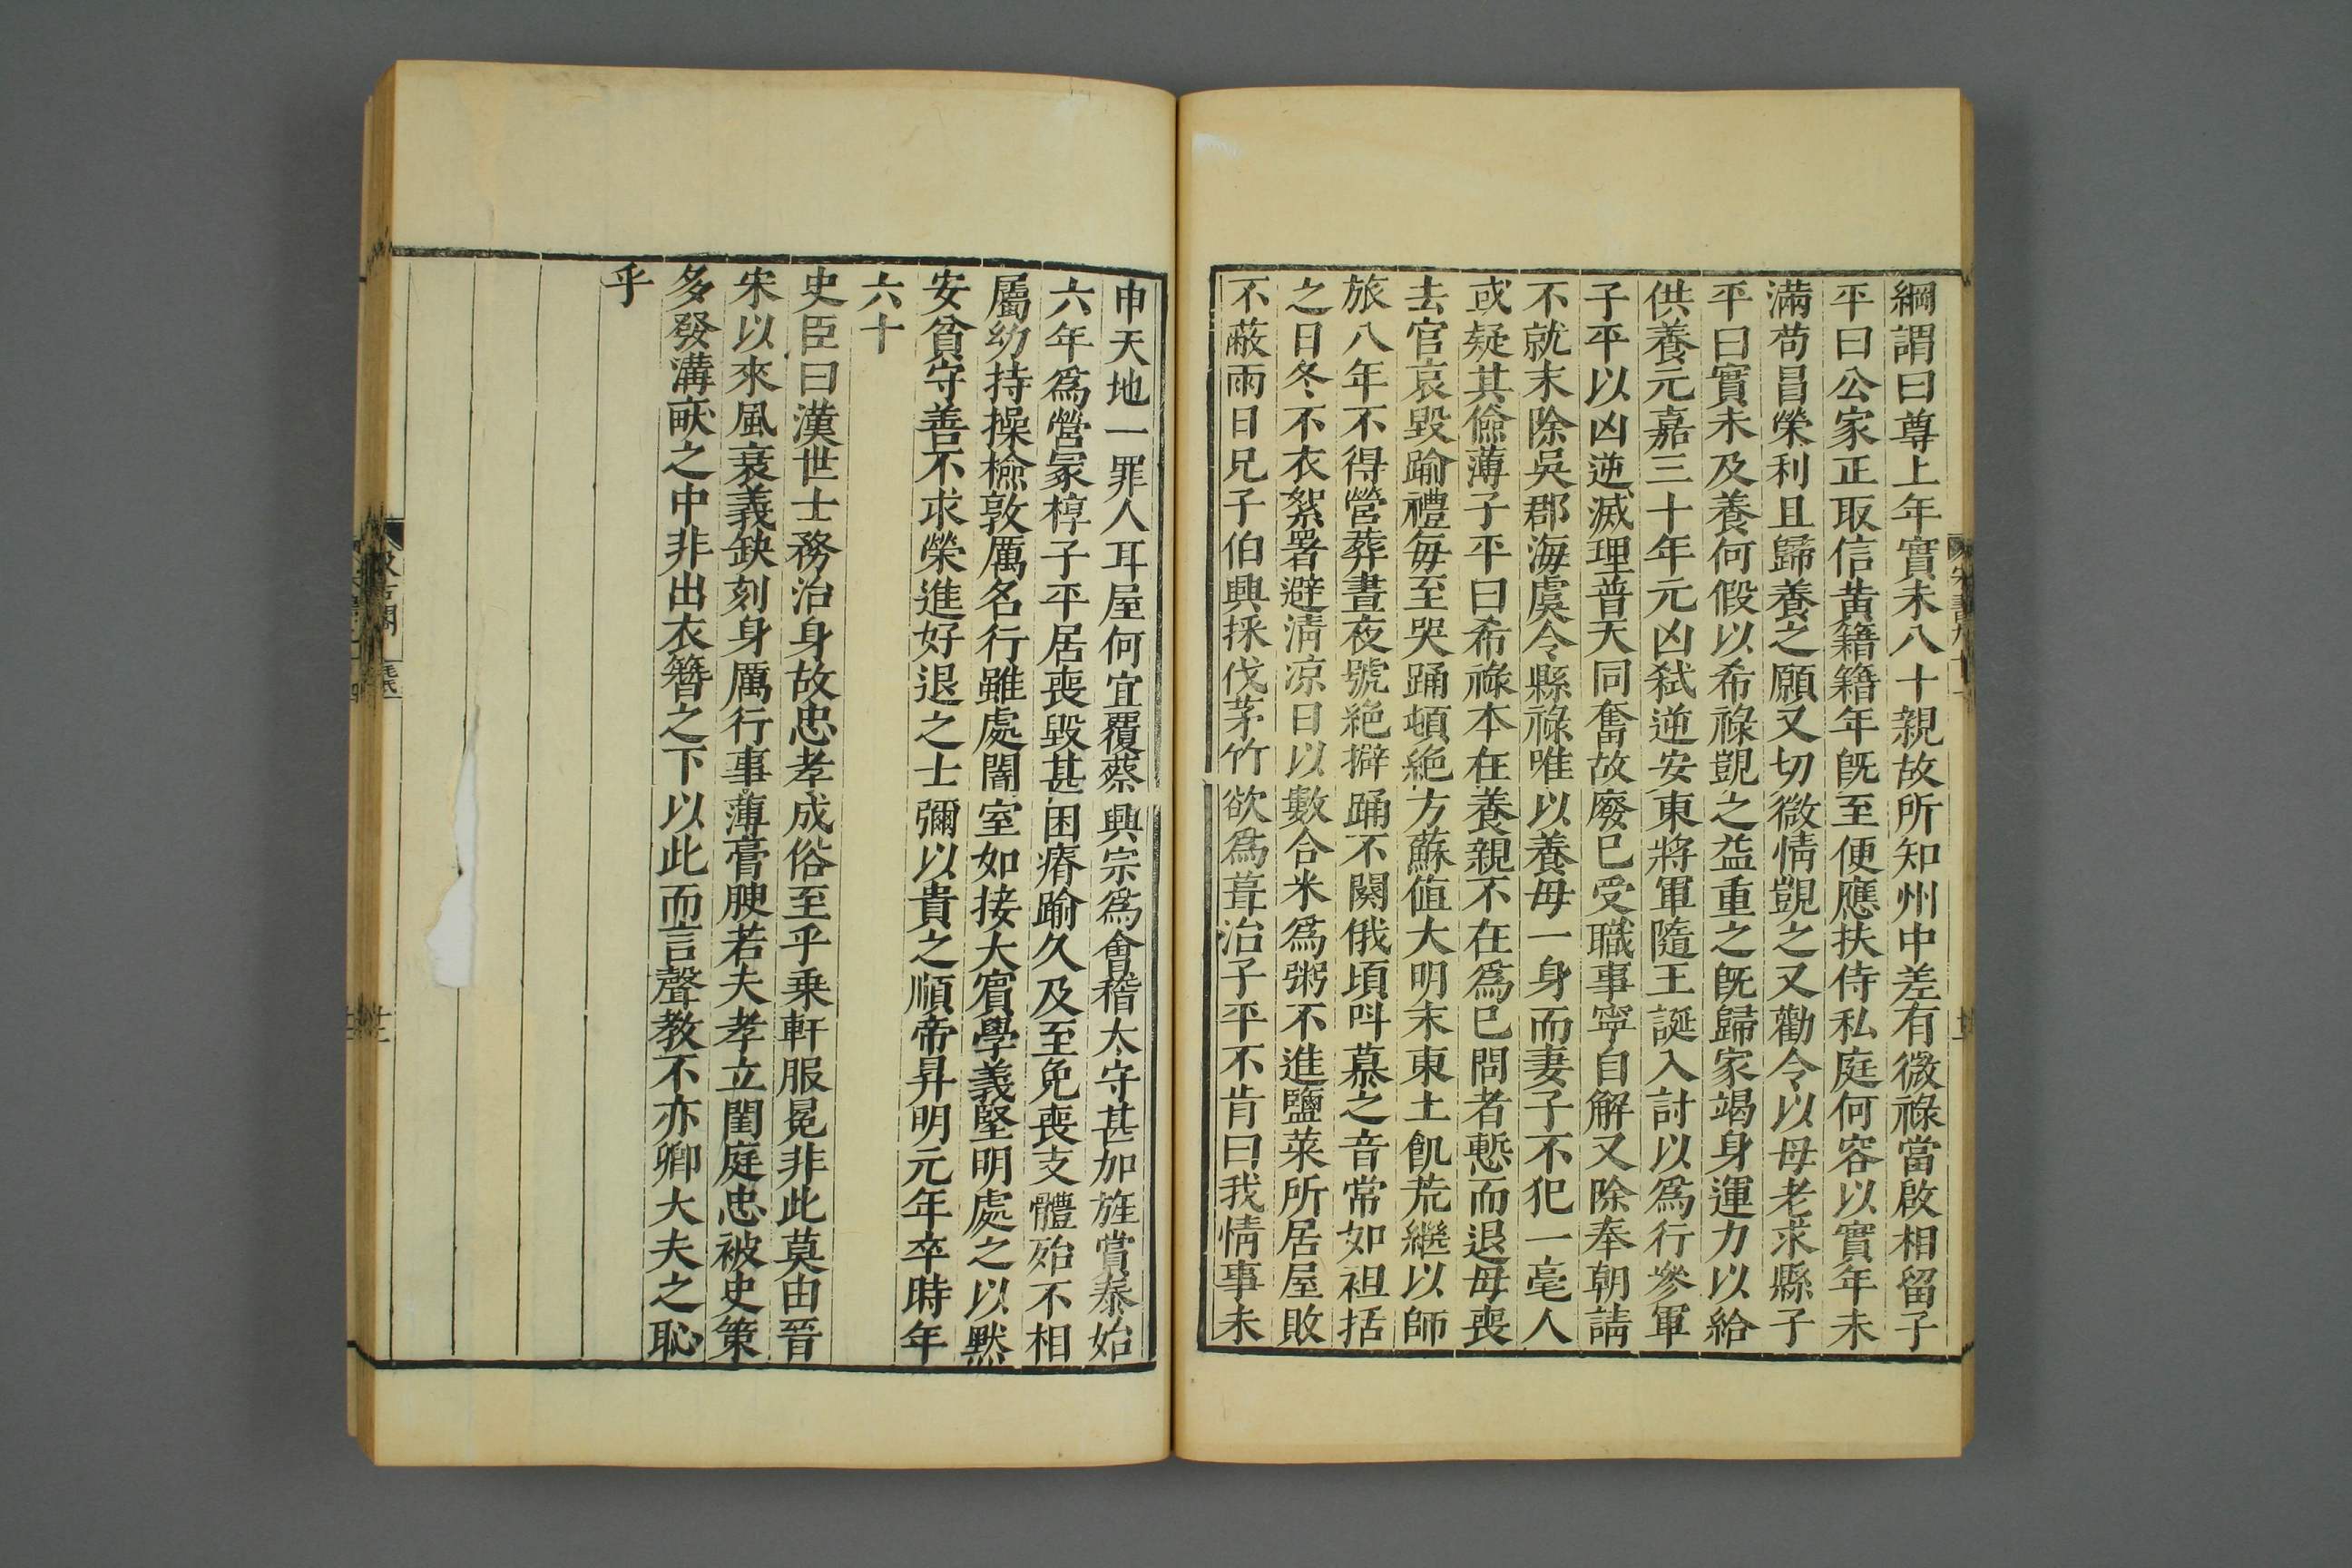 綱謂曰尊上年實未八十親故所知州中差有微祿當啟相留子
平曰公家正取信黃籍籍年旣至便應扶侍私庭何容以實年未
滿苟昌榮利且歸養之願又切微情覬之又勸令以母老求縣子
平曰實未及養何假以希祿覬之益重之旣歸家竭身運力以給
供養元嘉三十年元凶弑逆安東將軍隨王誕入討以爲行參軍
子平以凶逆滅理普天同奮故廢已受職事寧自解又除奉朝請
不就末除吳郡海虞令縣祿唯以養母一身而妻子不犯一毫人
或疑其儉薄子平曰希祿本在養親不在爲已問者慙而退母喪
去官哀毀踰禮每至哭踊頓絶方蘇值大明末東土飢荒繼以師
旅八年不得營葬晝夜號絶擗踊不闋俄頃呌慕之音常如袒括
之日冬不衣絮暑避淸凉日以數合米爲粥不進鹽菜所居屋敗
不蔽雨日兄子伯興採伐茅竹欲爲葺治子平不肯曰我情事未
申天地一罪人耳屋何宜覆蔡興宗爲會稽太守甚加旌賞泰始
六年爲營冢椁子平居喪毀甚困瘠踰久及至免喪支體殆不相
屬幼持操檢敦厲名行雖處闇室如接大賓學義堅明處之以默
安貧守善不求榮進好退之士彌以貴之順帝昇明元年卒時年
六十
史臣曰漢世士務治身故忠孝成俗至乎乗軒服冕非此莫由晉
宋以來風衰義缺刻身厲行事薄膏腴若夫孝立閨庭忠被史策
多發溝畎之中非出衣簪之下以此而言聲敎不亦卿大夫之恥
乎